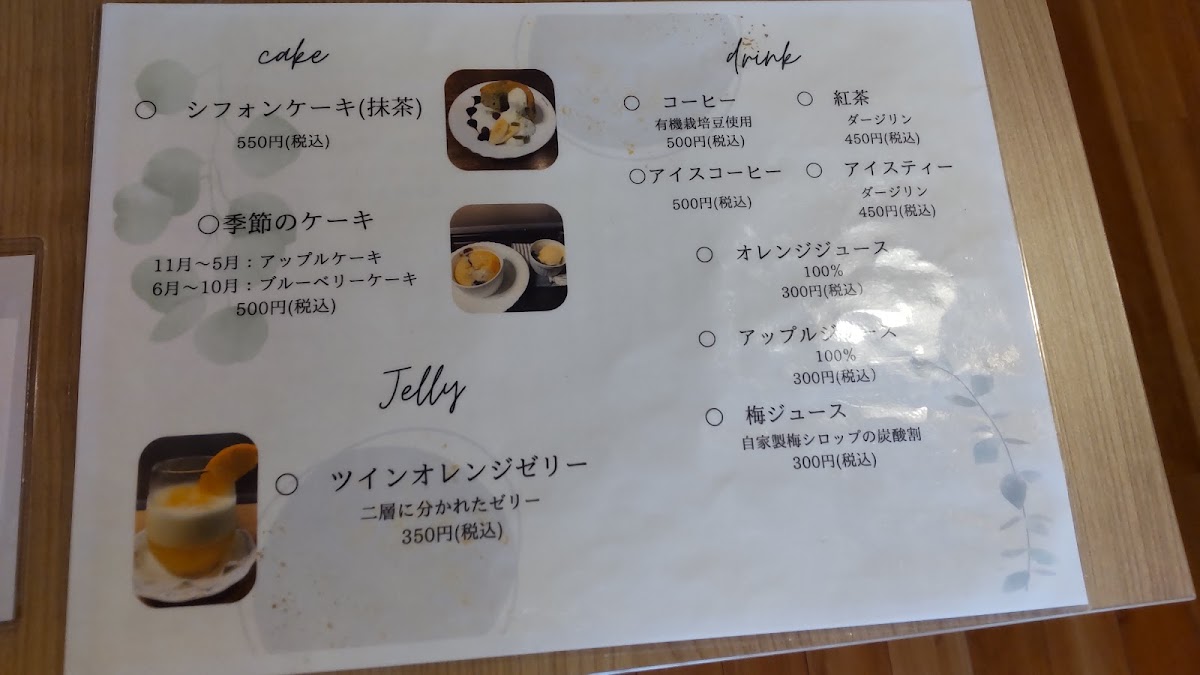 cake
○ シフォンケーキ(抹茶)
550円(税込)
○季節のケーキ
11月～5月：アップルケーキ
6月～10月：ブルーベリーケーキ
500円(税込)
Jelly
○ ツインオレンジゼリー
二層に分かれたゼリー
350円(税込)
drink
○ コーヒー
有機栽培豆使用
500円(税込)
○ 紅茶
ダージリン
450円(税込)
○アイスコーヒー
500円(税込)
○ アイスティー
ダージリン
450円(税込)
○ オレンジジュース
100%
300円(税込)
○ アップルジュース
100%
300円(税込)
○ 梅ジュース
自家製梅シロップの炭酸割
300円(税込)